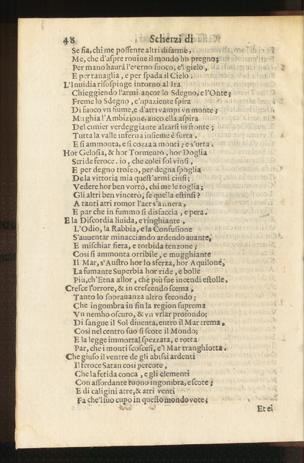 48 Scherzi di
Se sia, chi me possente altri disarme,
Me, che d'aspre rouine il mondo hò pregno;
Per mano haurà l'eterno fuoco, e'l gielo,
E per muraglia, e per spada il Cielo.
L'Inuidia risospinge intorno al Ira
Chieggiendo l'armi ancor lo Sdegno, e l'Onte;
Freme lo Sdegno, e spatiente spira
Di fuoco vn fiume, e d'atri vampi vn monte;
Mughia l'Ambitione, anco ella aspira
Del cimier verdeggiante alzarsi in fronte;
Tutta la valle inferna insieme è surra,
E si ammonta, e si cozza a morti; e s'urta.
Hor Gelosia, & hor Tormento, hor Doglia
Stride feroce. io, che colei sol vinsi,
E per degno troseo, per degna spoglia
De la vittoria mia quest'armi cinsi;
Vedere hor ben vorrò, chi me le toglia;
Gli altri ben vincerò, se quella estinsi?
A tanti atri romor l'aer s'annera,
E par che in fummo si disfaccia, e pera.
E la Discordia liuida, e ringhiante,
L'Odio, la Rabbia, e la Confusione
S'auuentar minacciando ardendo auante,
E mischiar fiera, e torbida tenzone;
Cosi si ammonta orribile, e mugghiante
Il Mar, s'Austro hor lo sferza, hor Aquilone,
La fumante Superbia hor ride, e bolle
Più, ch'Etna allor, che più sue incendi estolle.
Cresce l'orrore, & in crescendo scema,
Tanto lo soprauanza altro secondo;
Che ingombra in fin la region suprema
Vn nembo oscuro, & vn vrlar profondo;
Di sangue il Sol diuenta, entro il Mar trema,
Cosi nel centro suo si scote il Mondo;
E la legge immortal spezzata, e rotta
Par, che i monti scoscesi, e'l Mar tranghiotta.
Che giuso il ventre de gli abissi ardenti
Il feroce Satan cosi percote,
Che la fetida conca, e gli elementi
Con assordante tuono ingombra, e scote;
E di caligini atre, & atri venti
Fa che'l suo cupo in questo mondo vote;
Et ei